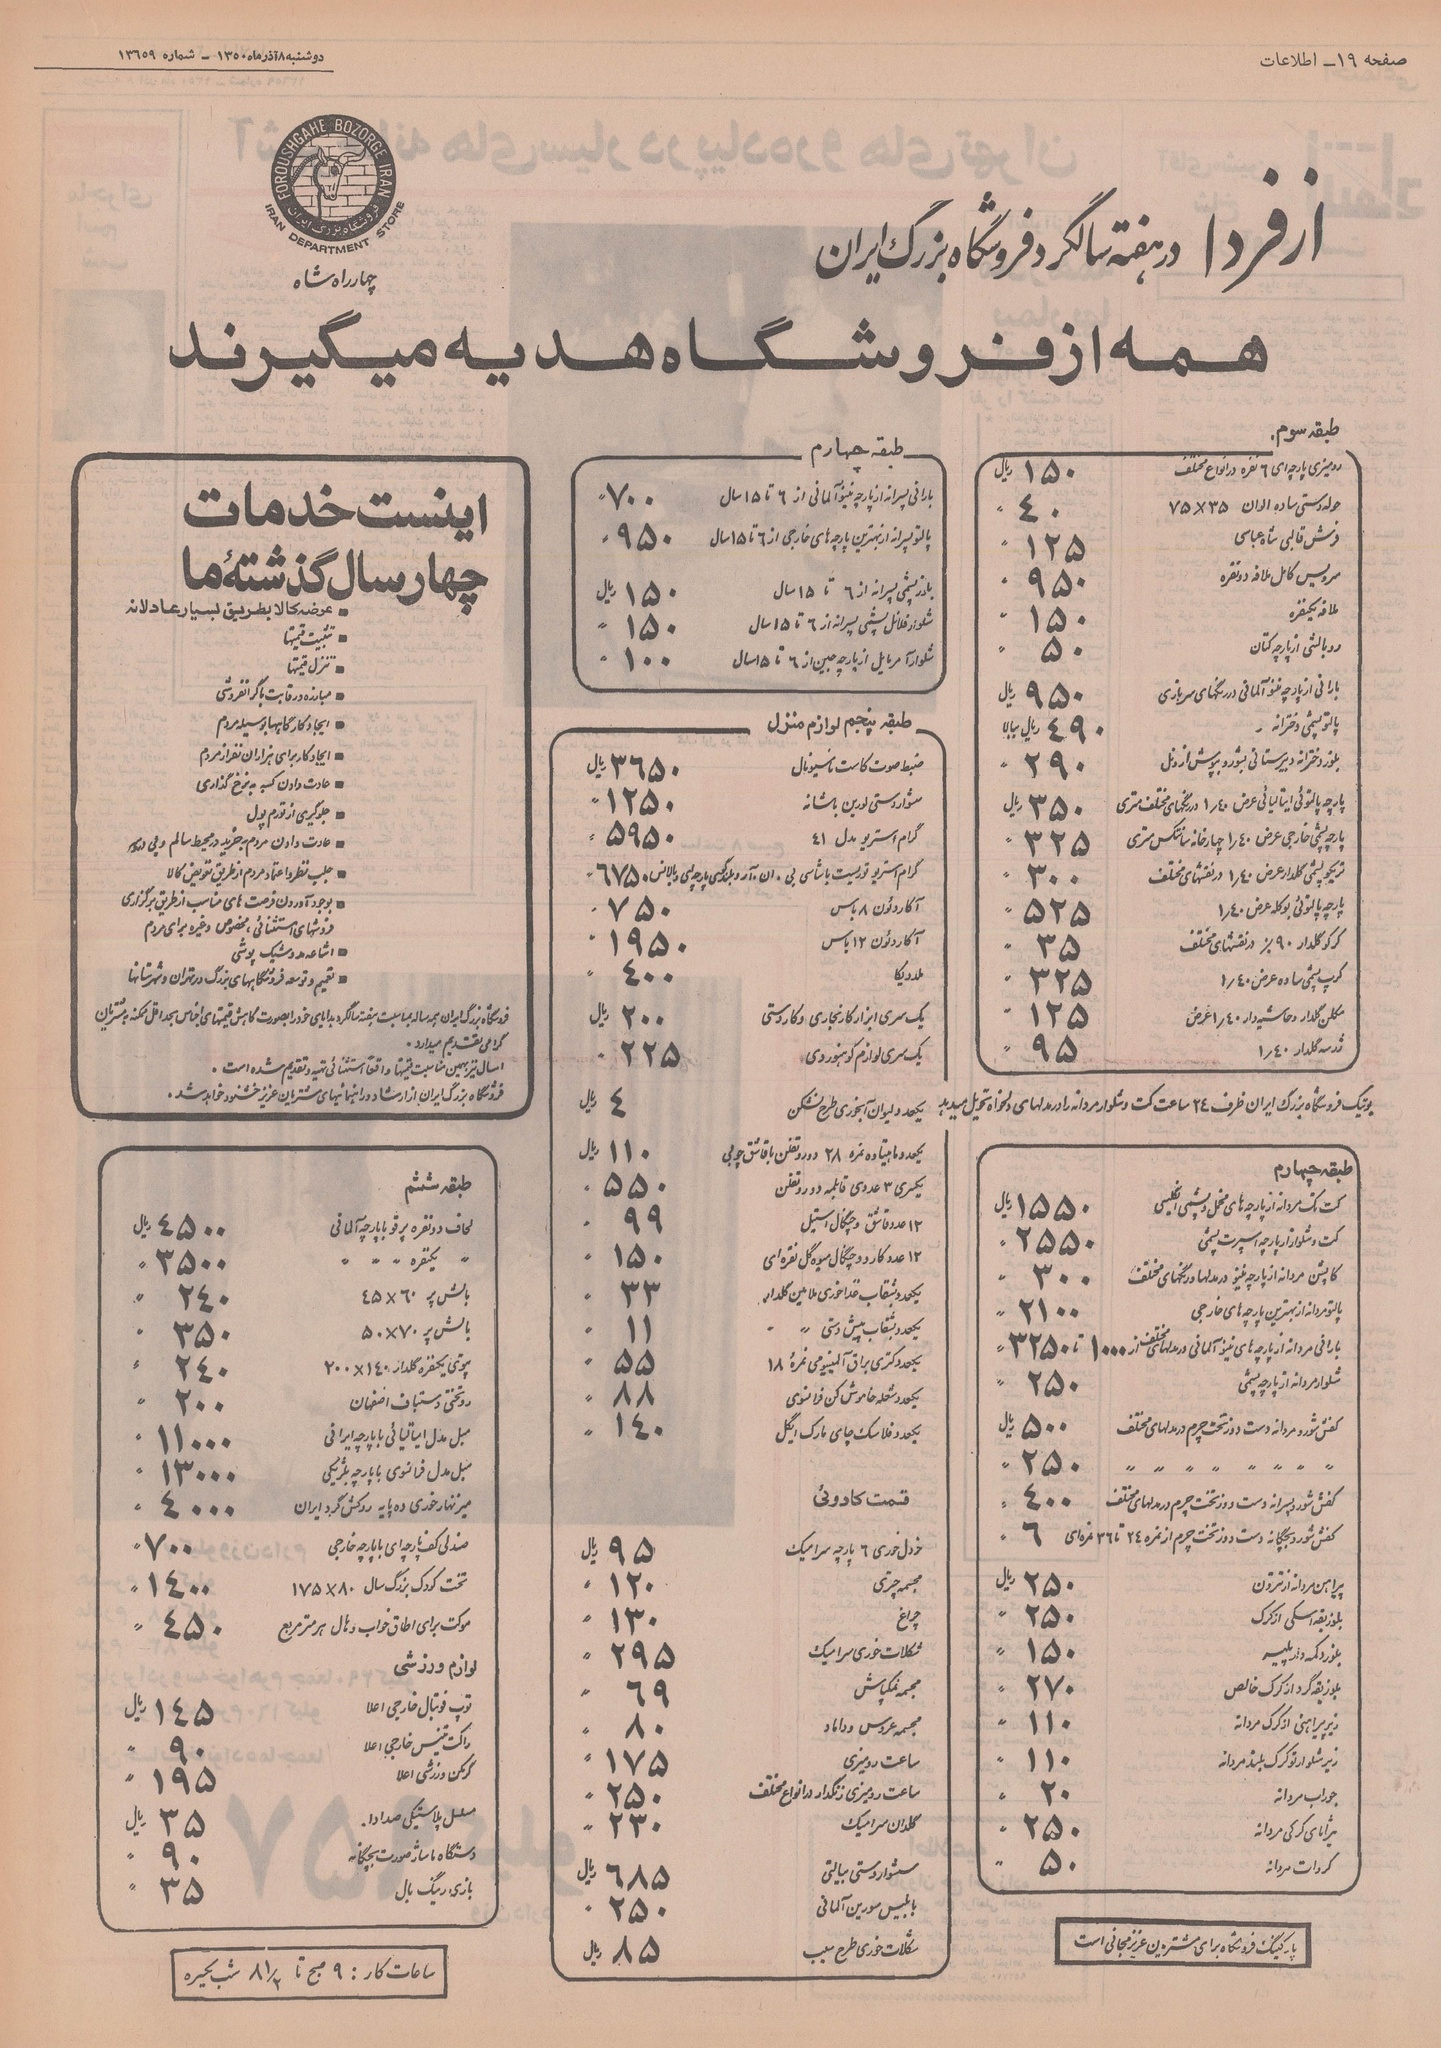 صفحه ۱۹ـ اطلاعات
دوشنبه ۸ آذر ماه ۱۳۵۰ ـ شماره ۱۳۶۵۹
FOROUSHGAHE BOZORGE IRAN
فروشگاه بزرگ ایران
IRAN DEPARTMENT STORE
چهارراه شاه
از فردا در هفته سالگرد فروشگاه بزرگ ایران
همه از فروشگاه هدیه میگیرند
طبقه سوم
رومیزی پارچه‌ای ۶ نفره در انواع مختلف ۱۵۰ ریال
حوله دستی ساده الوان ۳۵×۷۵ ۴۰ "
فرش قالبی شاه عباسی ۱۲۵ "
سرویس کامل ملافه دونفره ۹۵۰ "
ملافه یکنفره ۱۵۰ "
روبالشی از پارچه کتان ۵۰ "
بارانی از پارچه نینو آلمانی در رنگهای سربازی ۹۵۰ ریال
پالتو پشمی دخترانه از ۴۹۰ ریال ببالا
بلوز دخترانه دبیرستانی بشور و بپوش از ونل ۲۹۰ "
پارچه پالتوئی ایتالیائی عرض ۱٫۴۰ در رنگهای مختلف متری ۳۵۰ ریال
پارچه پشمی خارجی عرض ۱٫۴۰ چهارخانه سانتکس متری ۳۲۵ "
تریکو پشمی گلدار عرض ۱٫۴۰ در نقشهای مختلف ۳۰۰ "
پارچه پالتوئی بوکله عرض ۱٫۴۰ ۵۲۵ "
کرکو گلدار ۹۰ در نقشهای مختلف ۳۵ "
کرپ پشمی ساده عرض ۱٫۴۰ ۳۲۵ "
گلدار و حاشیه‌دار ۱٫۴۰ عرض ۱۲۵ "
گلدار ۱٫۴۰ ۹۵ "
بوتیک فروشگاه بزرگ ایران ظرف ۲۴ ساعت کت و شلوار مردانه را در مدلهای دلخواه تحویل میدهد
طبقه چهارم
کت تک مردانه از پارچه‌های مخمل و پشمی انگلیسی ۱۵۵۰ ریال
کت و شلوار از پارچه اسپرت پشمی ۲۵۵۰ "
کاپشن مردانه از پارچه نینو در مدلها و رنگهای مختلف ۳۰۰ "
پالتو مردانه از بهترین پارچه‌های خارجی ۲۱۰۰ "
بارانی مردانه از پارچه‌های نینو آلمانی در مدلهای مختلف از ۱۰۰۰ تا ۳۲۵۰ "
شلوار مردانه از پارچه پشمی ۲۵۰ "
کفش شورو مردانه دست دوز تخت چرم در مدلهای مختلف ۵۰۰ ریال
" " " " " " " " ۲۵۰ "
کفش شورو پسرانه دست دوز تخت چرم در مدلهای مختلف ۴۰۰ "
کفش شورو بچگانه دست دوز تخت چرم از نمره ۲۴ تا ۳۶ نمره‌ای ۶ "
پیراهن مردانه از ترون ۲۵۰ ریال
بلوز یقه اسکی از کرک ۲۵۰ "
بلوز دکمه دار پلیسر ۱۵۰ "
بلوز یقه گرد از کرک خالص ۲۷۰ "
زیرپیراهنی از کرک مردانه ۱۱۰ "
زیر شلوار تو کرک بلند مردانه ۱۱۰ "
جوراب مردانه ۲۰ "
پیژامای کرکی مردانه ۲۵۰ "
کروات مردانه ۵۰ "
پارکینگ فروشگاه برای مشتریان عزیز مجانی است
طبقه چهارم
بارانی پسرانه از پارچه نینو آلمانی از ۶ تا ۱۵ سال ۷۰۰ "
پالتو پسرانه از بهترین پارچه‌های خارجی از ۶ تا ۱۵ سال ۹۵۰ "
بلوز پشمی پسرانه از ۶ تا ۱۵ سال ۱۵۰ ریال
شلوار فلانل پشمی پسرانه از ۶ تا ۱۵ سال ۱۵۰ "
شلوار آمریایل از پارچه جین از ۶ تا ۱۵ سال ۱۰۰ "
طبقه پنجم لوازم منزل
ضبط صوت کاست ناسیونال ۳۶۵۰ ریال
سشوار دستی لورین باشانه ۱۲۵۰ "
گرام استریو مدل ۴۱ ۵۹۵۰ "
گرام استریو توریست با شاسی بی . ان. آر و بلندگوی پارچه‌ای و بالانس ۶۷۵۰ "
آکاردئون ۸ باس ۷۵۰ "
آکاردئون ۱۲ باس ۱۹۵۰ "
ملودیکا ۴۰۰ "
یک سری ابزار کار نجاری و کاردستی ۲۰۰ ریال
یک سری لوازم کوهنوردی ۲۲۵ "
یکعدد لیوان آبخوری طرح نشکن ۴ ریال
یکعدد ماهیتابه نمره ۲۸ دورو تفلن با قاشق چوبی ۱۱۰ ریال
یکسری ۳ عددی قابلمه دورو تفلن ۵۵۰ "
۱۲ عدد قاشق و چنگال استیل ۹۹ "
۱۲ عدد کارد و چنگال میوه گل نقره‌ای ۱۵۰ "
یکعدد بشقاب غذاخوری ملامین گلدار ۳۳ "
یکعدد بشقاب پیش دستی " " ۱۱ "
یکعدد کتری براق آلمینیومی نمرهٔ ۱۸ ۵۵ "
یکعدد شعله خاموش کن فرانسوی ۸۸ "
یکعدد فلاسک چای مارک ایگل ۱۴۰ "
قسمت کادوئی
خردل خوری ۶ پارچه سرامیک ۹۵ ریال
مجسمه چتری ۱۲۰ "
چراغ ۱۳۰ "
شکلات خوری سرامیک ۲۹۵ "
مجسمه نمکپاش ۶۹ "
مجسمه عروس و داماد ۸۰ "
ساعت رومیزی ۱۷۵ "
ساعت رومیزی زنگدار در انواع مختلف ۲۵۰ "
گلدان سرامیک ۲۳۰ "
سشوار دستی ۶۸۵ ریال
بابلیس سورین آلمانی ۲۵۰ "
شکلات خوری طرح سیب ۸۵ ریال
اینست خدمات
چهار سال گذشتهٔ ما
▪ عرضه کالا بطریق بسیار عادلانه
▪ تثبیت قیمتها
▪ تنزل قیمتها
▪ مبارزه و رقابت با گرانفروشی
▪ ایجاد کارگاهها بوسیله مردم
▪ ایجاد کار برای هزاران نفر از مردم
▪ عادت دادن کسبه به نرخ گذاری
▪ جلوگیری از تورم پول
▪ عادت دادن مردم به خرید در محیط سالم و بی دردسر
▪ جلب نظر و اعتماد مردم از طریق تعویض کالا
▪ بوجود آوردن فرصت های مناسب از طریق برگزاری
فروشهای استثنائی، مخصوص و غیره برای مردم
▪ اشاعه مد و شیک پوشی
▪ تعمیم و توسعه فروشگاههای بزرگ در تهران و شهرستانها
فروشگاه بزرگ ایران همه ساله بمناسبت هفته سالگرد هدایای خود را بصورت کاهش قیمتهای اجناس بحداقل ممکنه به مشتریان
گرامی تقدیم میدارد .
امسال نیز بهمین مناسبت قیمتها واقعاً استثنائی تهیه و تقدیم شده است .
فروشگاه بزرگ ایران از ارشاد و راهنمائیهای مشتریان عزیز خشنود خواهد شد .
طبقه ششم
لحاف دونفره پرقو با پارچه آلمانی ۴۵۰۰ ریال
" یکنفره " " " ۳۵۰۰ "
بالش پر ۶۰×۴۵ ۲۴۰ "
بالش پر ۷۰×۵۰ ۳۵۰ "
پتوی یکنفره گلدار ۱۴۰×۲۰۰ ۲۴۰ "
روتختی دستباف اصفهان ۲۰۰ "
مبل مدل ایتالیائی با پارچه ایرانی ۱۱۰۰۰ "
مبل مدل فرانسوی با پارچه بلژیکی ۱۳۰۰۰ "
میز نهارخوری ده پایه روکش گرد ایران ۴۰۰۰ "
صندلی کف پارچه‌ای با پارچه خارجی ۷۰۰ "
تخت کودک بزرگ سال ۸۰×۱۷۵ ۱۴۰۰ "
موکت برای اطاق خواب و هال هر متر مربع ۴۵۰ "
لوازم ورزشی
توپ فوتبال خارجی اعلا ۱۴۵ ریال
راکت تنیس خارجی اعلا ۹۰ "
گرمکن ورزشی اعلا ۱۹۵ "
مسلسل پلاستیکی صدادار ۳۵ ریال
دستگاه ماساژ صورت بچگانه ۹۰ "
بازی رینگ بال ۳۵ "
ساعات کار : ۹ صبح تا ۸ ۱/۲ شب یکسره